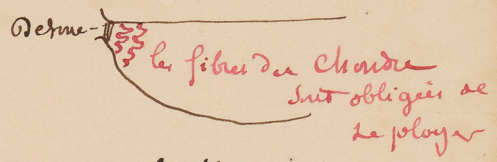 Desme-
les fibres du Chondre
sont obligées de
se ployer